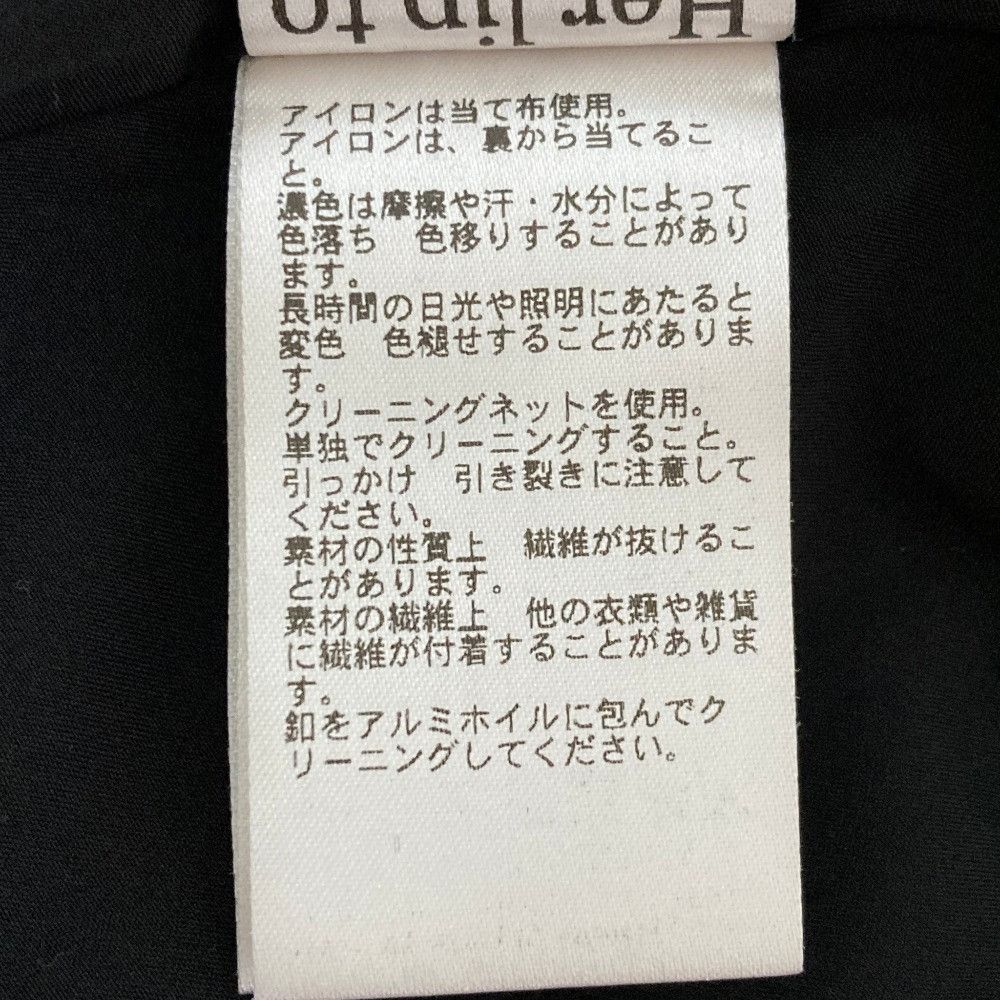 Her lip to
アイロンは当て布使用。
アイロンは、裏から当てるこ
と。
濃色は摩擦や汗・水分によって
色落ち　色移りすることがあり
ます。
長時間の日光や照明にあたると
変色　色褪せすることがありま
す。
クリーニングネットを使用。
単独でクリーニングすること。
引っかけ　引き裂きに注意して
ください。
素材の性質上　繊維が抜けるこ
とがあります。
素材の繊維上　他の衣類や雑貨
に繊維が付着することがありま
す。
釦をアルミホイルに包んでク
リーニングしてください。